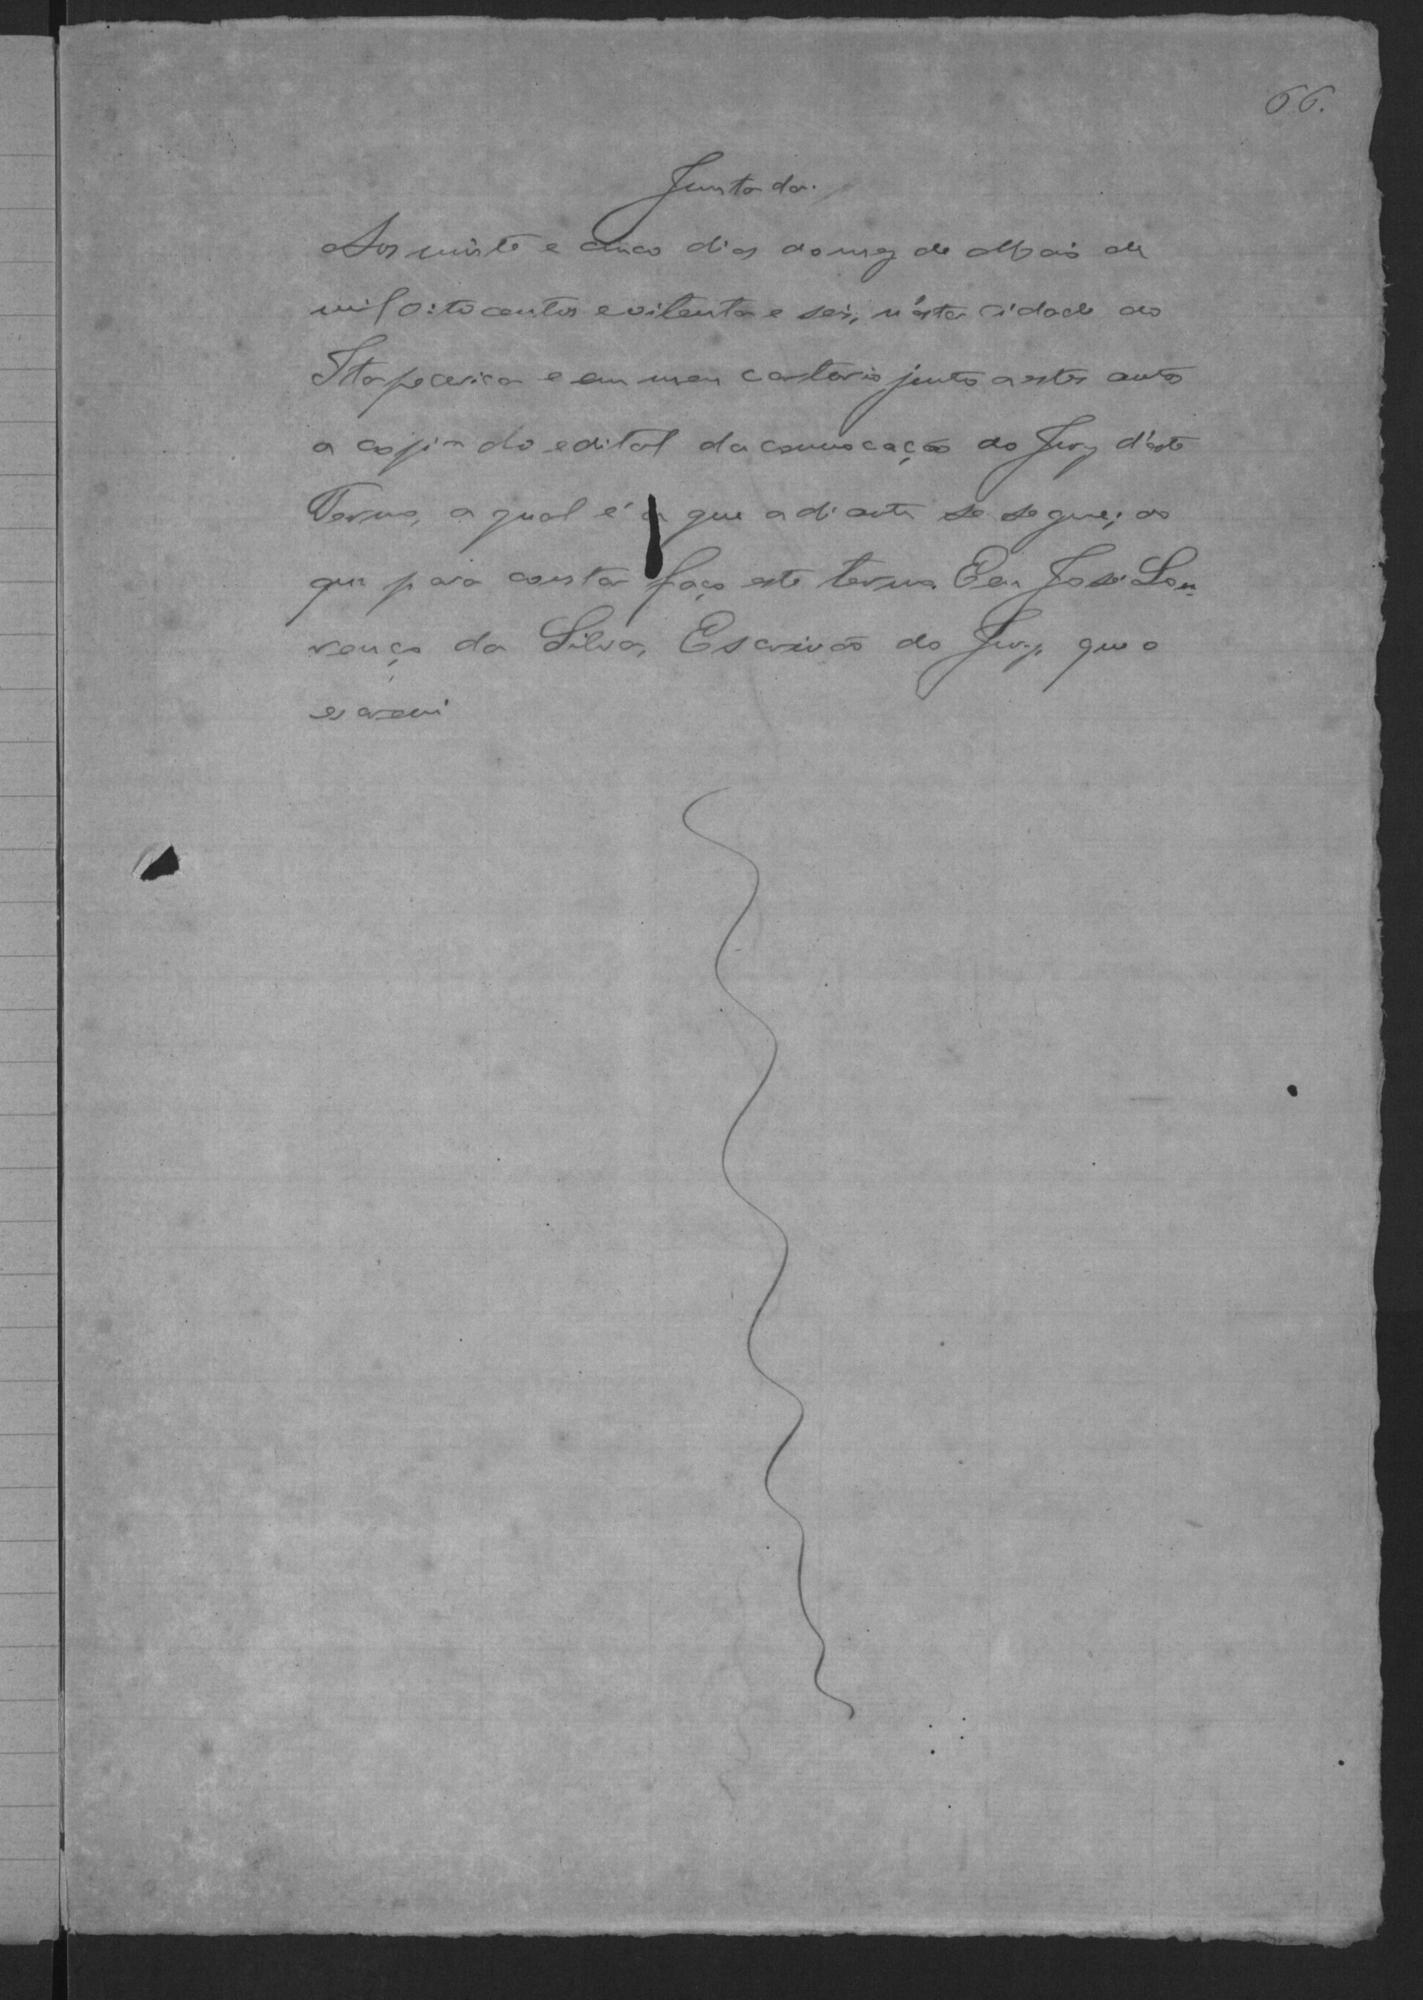 66.
Juntada.
Aos vinte e cinco dias do mez de Maio de
mil oitocentos e oitenta e seis, n'esta Cidade do
Itapecerica e em meu cartorio junto a estes autos
a copia do edital da convocação do Jury d'este
Termo, a qual é a que adiante se segue; do
que para constar faço este termo. Eu José Lou
renço da Silva, Escrivão do Jury, que o
escrevi